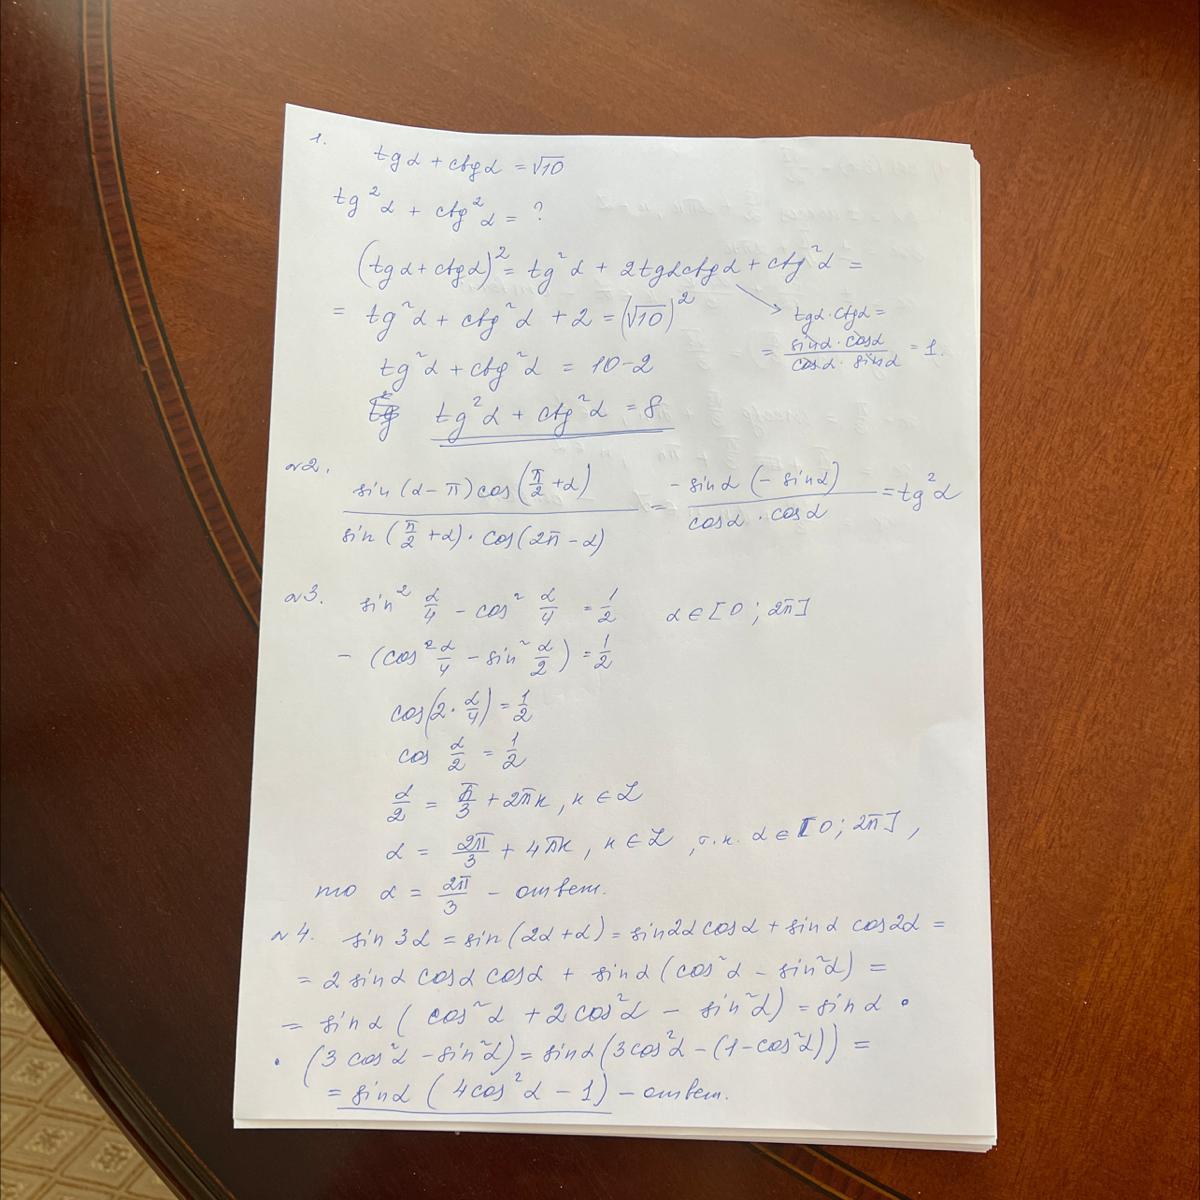 1.
tgα + ctgα = √10
tg²α + ctg²α = ?
(tgα + ctgα)² = tg²α + 2tgαctgα + ctg²α =
= tg²α + ctg²α + 2 = (√10)²
→ tgα · ctgα =
= sinα · cosα / cosα · sinα = 1.
tg²α + ctg²α = 10 - 2
tg²α + ctg²α = 8
№2.
sin(α - π) cos(π/2 + α) / sin(π/2 + α) · cos(2π - α) = - sinα (- sinα) / cosα · cosα = tg²α
№3. sin² α/4 - cos² α/4 = 1/2 α ∈ [0; 2π]
- (cos² α/4 - sin² α/2) = 1/2
cos(2 · α/4) = 1/2
cos α/2 = 1/2
α/2 = π/3 + 2πк, к ∈ Z
α = 2π/3 + 4πк, к ∈ Z, т.к. α ∈ [0; 2π],
то α = 2π/3 - ответ.
№4. sin 3α = sin(2α + α) = sin2α cosα + sinα cos2α =
= 2 sinα cosα cosα + sinα (cos²α - sin²α) =
= sinα (cos²α + 2cos²α - sin²α) = sinα ·
· (3 cos²α - sin²α) = sinα (3cos²α - (1 - cos²α)) =
= sinα (4cos²α - 1) - ответ.